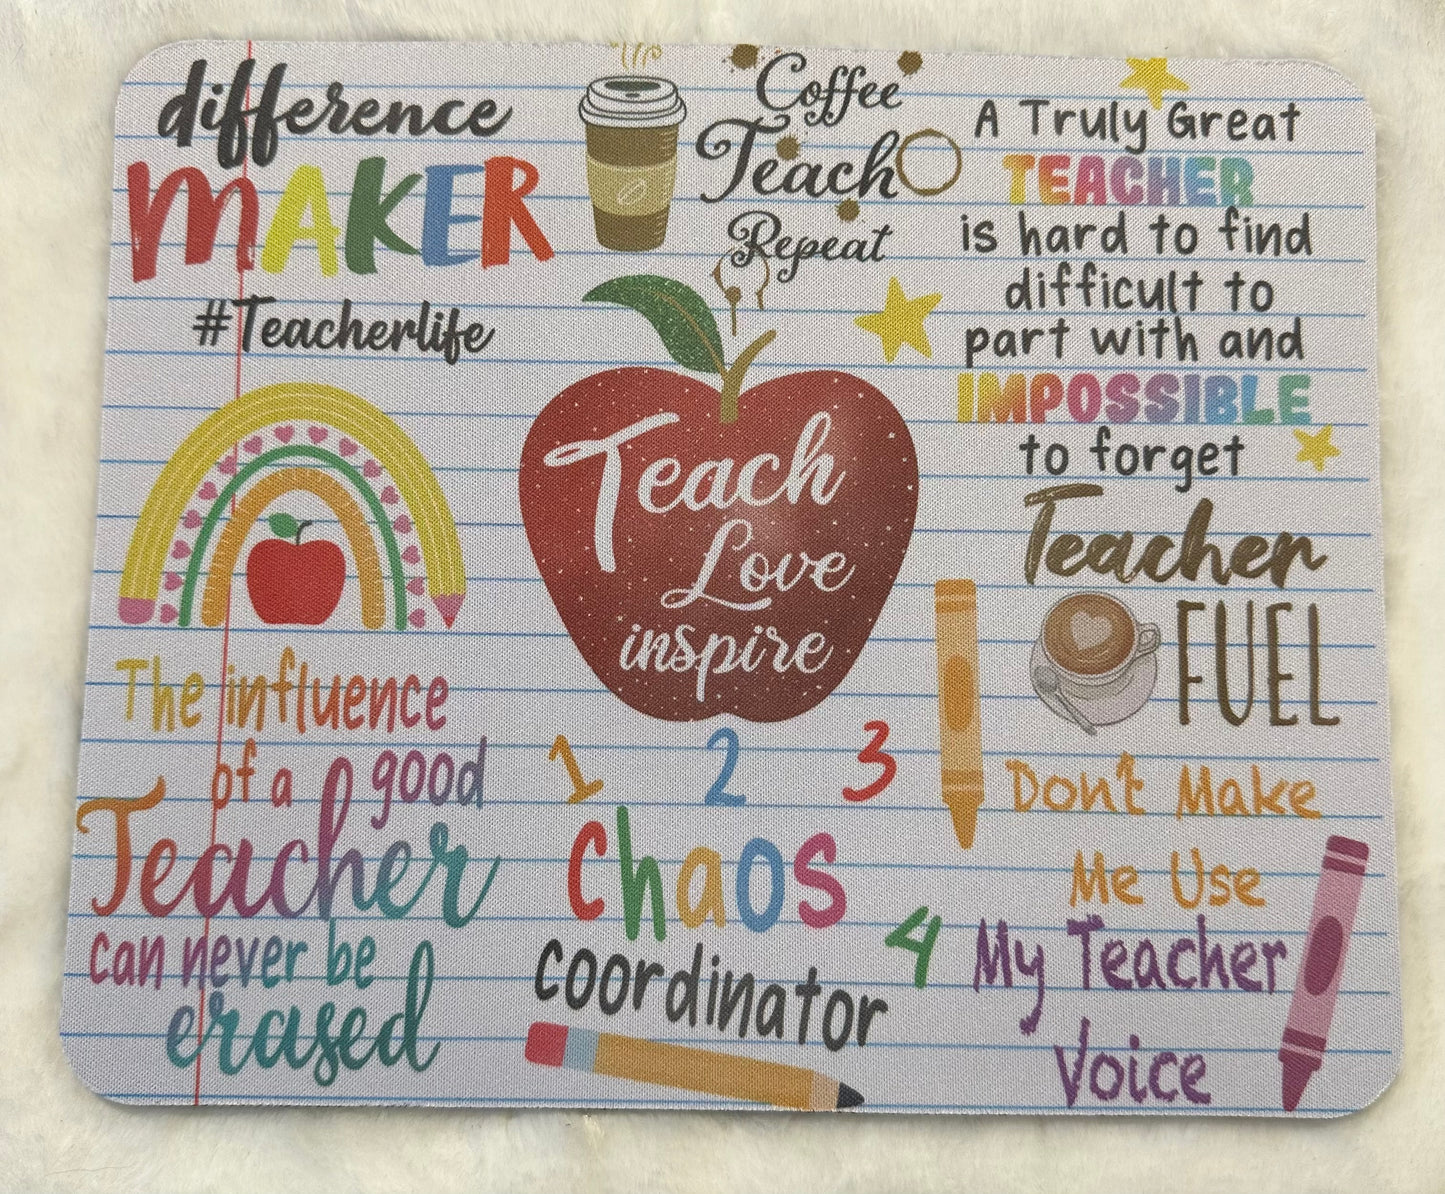 difference
MAKER
#Teacherlife
Coffee
Teach
Repeat
A Truly Great
TEACHER
is hard to find
difficult to
part with and
IMPOSSIBLE
to forget
Teach
Love
inspire
Teacher
FUEL
The influence
of a good
Teacher
can never be
erased
1 2 3
Chaos
4
coordinator
Don't Make
Me Use
My Teacher
Voice